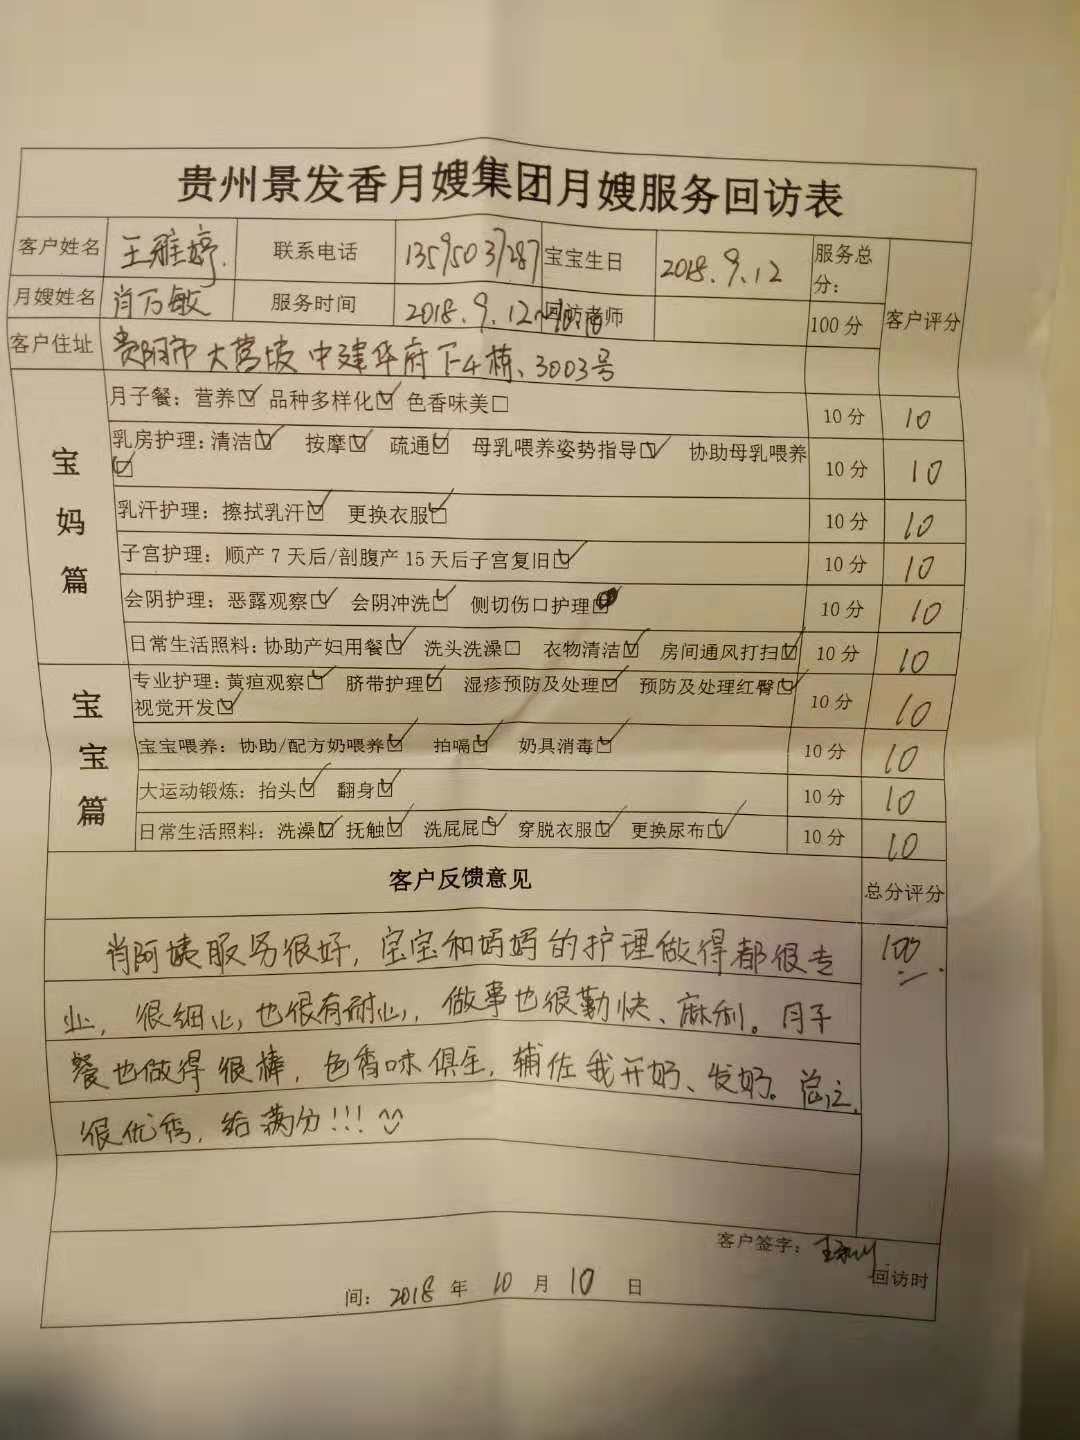 贵州景发香月嫂集团月嫂服务回访表
客户姓名 王雅婷. 联系电话 13595037287 宝宝生日 2018.9.12 服务总分: 客户评分
月嫂姓名 肖万敏 服务时间 2018.9.12~10.10 回访老师 100分
客户住址 贵阳市大营坡中建华府下4栋、3003号
宝妈篇
月子餐：营养☑ 品种多样化☑ 色香味美□ 10分 10
乳房护理：清洁☑ 按摩☑ 疏通☑ 母乳喂养姿势指导☑ 协助母乳喂养 10分 10
☑
乳汗护理：擦拭乳汗☑ 更换衣服☑ 10分 10
子宫护理：顺产7天后/剖腹产15天后子宫复旧☑ 10分 10
会阴护理：恶露观察☑ 会阴冲洗☑ 侧切伤口护理 10分 10
日常生活照料：协助产妇用餐☑ 洗头洗澡□ 衣物清洁☑ 房间通风打扫☑ 10分 10
宝宝篇
专业护理：黄疸观察☑ 脐带护理☑ 湿疹预防及处理☑ 预防及处理红臀☑ 10分 10
视觉开发☑
宝宝喂养：协助/配方奶喂养☑ 拍嗝☑ 奶具消毒☑ 10分 10
大运动锻炼：抬头☑ 翻身☑ 10分 10
日常生活照料：洗澡☑ 抚触☑ 洗屁屁☑ 穿脱衣服☑ 更换尿布☑ 10分 10
客户反馈意见 总分评分
肖阿姨服务很好，宝宝和妈妈的护理做得都很专 100
业，很细心，也很有耐心，做事也很勤快、麻利。月子
餐也做得很棒，色香味俱全，辅佐我开奶、发奶。总之，
很优秀，给满分!!!
客户签字：
回访时
间：2018年10月10日